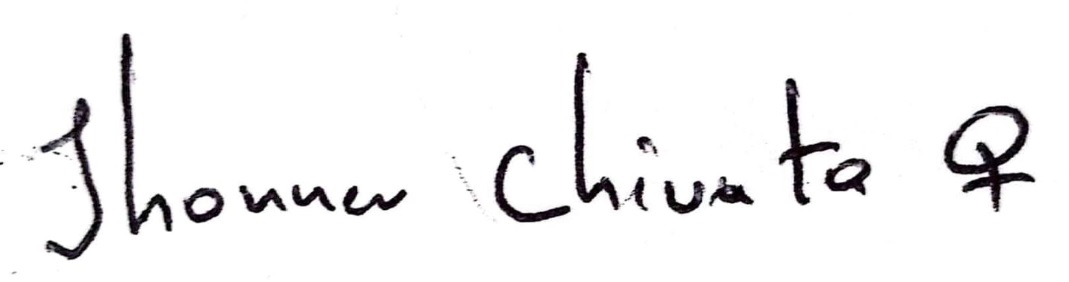 Jhonner Chivata ♀